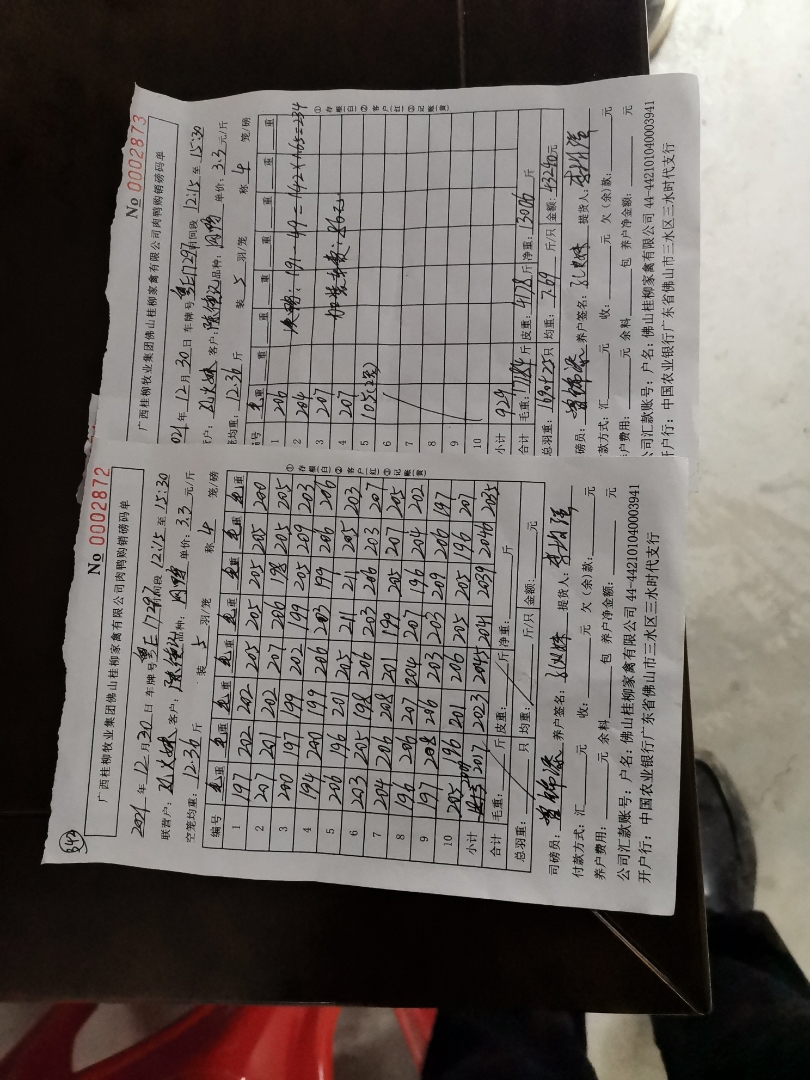 No 0002872
广西桂柳牧业集团佛山桂柳家禽有限公司肉鸭购销磅码单
342
2021 年 12 月 30 日 车牌号 粤E17297 时间段 12:15 至 15:30
联营户: 客户: 品种: 单价: 3.3 元/斤
空笼均重: 12.36 斤 装 5 羽/笼 称 4 笼/磅
编号 毛重 毛重 毛重 毛重 毛重 毛重 毛重 毛重
1 197 202 202 205 205 205 205 200
2 207 201 202 207 200 198 205 205
3 200 197 199 202 199 205 209 203
4 194 200 199 206 203 199 206 206
5 206 196 201 205 211 211 205 203
6 203 205 198 206 203 206 203 207
7 204 206 208 201 199 205 207 205
8 196 206 207 204 207 196 204 202
9 197 208 206 203 203 209 206 197
10 205 196 201 206 205 205 196 207
小计 2009 2017 2023 2045 2041 2039 2046 2035
合计 毛重: 斤 皮重: 斤 净重: 斤
总羽重: 只 均重: 斤/只 金额: 元
司磅员: 养户签名: 提货人:
付款方式: 汇 元 收: 元 欠(余)款: 元
养户费用: 元 余料 包 养户净金额: 元
公司汇款账号: 户名: 佛山桂柳家禽有限公司 44-442101040003941
开户行: 中国农业银行广东省佛山市三水区三水时代支行
①存根(白)②客户(红)③记账(黄)
No 0002873
广西桂柳牧业集团佛山桂柳家禽有限公司肉鸭购销磅码单
021 年 12 月 30 日 车牌号 粤E17297 时间段 12:15 至 15:30
营户: 客户: 品种: 单价: 3.3 元/斤
笼均重: 12.36 斤 装 5 羽/笼 称 4 笼/磅
编号 毛重 重 重 重 重 重 重
1 206 : 191-49=142×1.65=234
2 204
3 207 加装车费: 86元
4 207
5 105(2笼)
6
7
8
9
10
小计 929
合计 毛重: 17184 斤 皮重: 4178 斤 净重: 13006 斤
总羽重: 1690+25 只 均重: 7.69 斤/只 金额: 43240 元
磅员: 养户签名: 提货人:
款方式: 汇 元 收: 元 欠(余)款: 元
户费用: 元 余料 包 养户净金额: 元
公司汇款账号: 户名: 佛山桂柳家禽有限公司 44-442101040003941
开户行: 中国农业银行广东省佛山市三水区三水时代支行
①存根(白)②客户(红)③记账(黄)